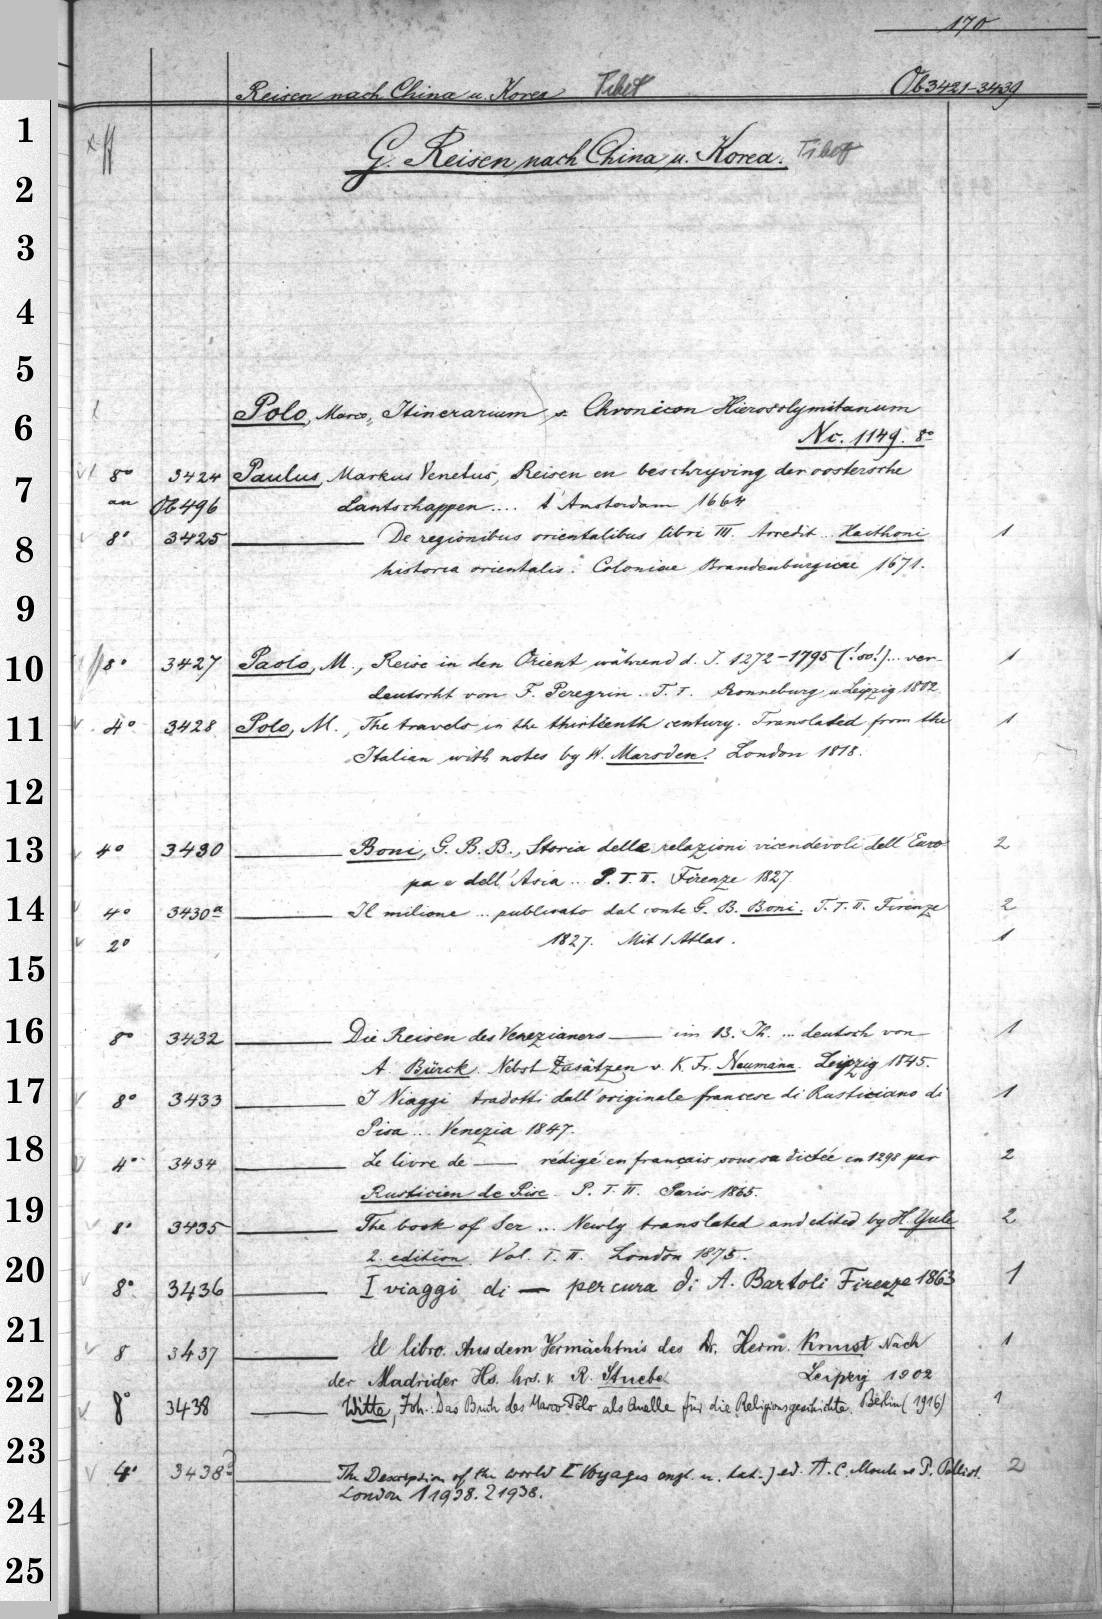 170
Reisen nach China u. Korea Tibet Ob 3421-3439
1
G. Reisen nach China u. Korea. Tibet
2
3
4
5
6
Polo, Marco, Itinerarium s. Chronicon Hierosolymitanum
Nc. 1149. 8°
7
8° 3424 Paulus, Markus Venetus, Reisen en beschryving der oostersche
an Ob 496 Lantschappen.... t'Amsterdam 1664
8
8° 3425 De regionibus orientalibus libri III. Accedit.. Haithoni 1
historia orientalis. Coloniae Brandenburgicae 1671.
9
10
8° 3427 Paolo, M., Reise in den Orient während d. J. 1272-1795 (!so!)... ver-
1
deutscht von F. Peregrin. T. I. Ronneburg u Leipzig 1802.
11
4° 3428 Polo, M., The travels in the thirteenth century. Translated from the 1
Italian with notes by W. Marsden. London 1818.
12
13
4° 3430 Boni, G. B. B., Storia delle relazioni vicendevoli dell'Euro 2
pa e dell'Asia .. P. I. II. Firenze 1827.
14
4° 3430a Il milione ... publicato dal conte G. B. Boni. T. I. II. Firenze 2
2° 1827. Mit 1 Atlas. 1
15
16
8° 3432 Die Reisen des Venezianers — im 13. Jh. ... deutsch von 1
A. Bürck. Nebst Zusätzen v. K. Fr. Neumann. Leipzig 1845.
17
8° 3433 I Viaggi tradotti dall'originale francese di Rusticiano di 1
Pisa ... Venezia 1847.
18
4° 3434 Le livre de — rédigé en français sous sa dictée en 1298 par 2
Rusticien de Pise. P. I. II. Paris 1865.
19
8° 3435 The book of Ser ... Newly translated and edited by H. Yule 2
2. edition. Vol. I. II. London 1875.
20
8° 3436 I viaggi di — per cura di A. Bartoli Firenze 1863 1
21
8 3437 El libro. Aus dem Vermächtnis des Dr. Herm. Knust Nach 1
der Madrider Hs. hrs. v. R. Stuebe Leipzig 1902
22
8° 3438 Witte, Joh.: Das Buch des Marco Polo als Quelle für die Religionsgeschichte. Berlin (1916) 1
23
4° 3438a The Description of the world [Voyages engl. u. lat.] ed. A. C. Moule & P. Pelliot. 2
London 1 1938. 2 1938.
24
25